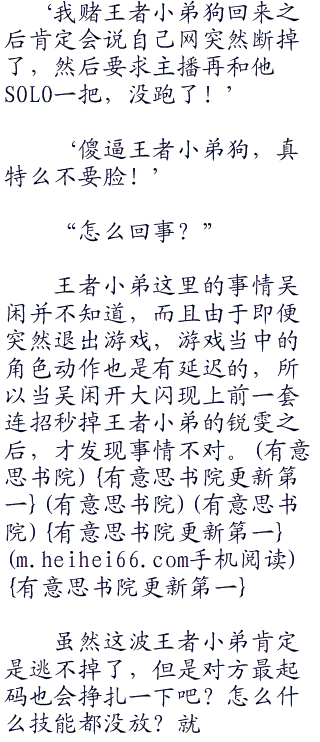 ‘我赌王者小弟狗回来之
后肯定会说自己网突然断掉
了，然后要求主播再和他
SOLO一把，没跑了！’
‘傻逼王者小弟狗，真
特么不要脸！’
“怎么回事？”
王者小弟这里的事情吴
闲并不知道，而且由于即便
突然退出游戏，游戏当中的
角色动作也是有延迟的，所
以当吴闲开大闪现上前一套
连招秒掉王者小弟的锐雯之
后，才发现事情不对。(有意
思书院){有意思书院更新第
一}(有意思书院)(有意思书
院){有意思书院更新第一}
(m.heihei66.com手机阅读)
{有意思书院更新第一}
虽然这波王者小弟肯定
是逃不掉了，但是对方最起
码也会挣扎一下吧？怎么什
么技能都没放？就